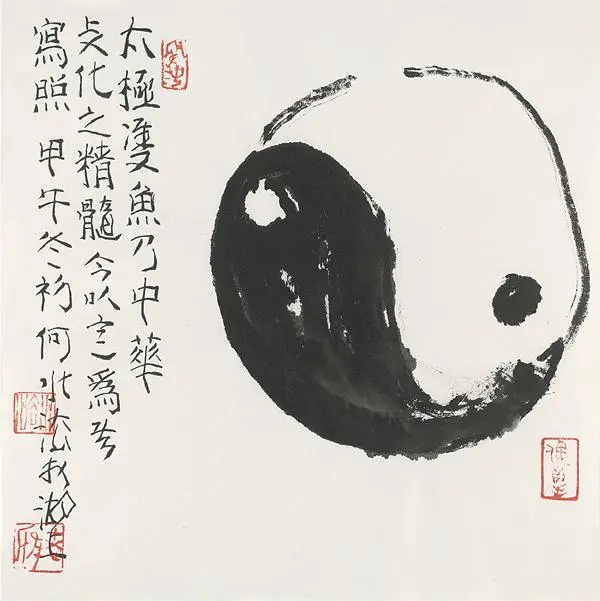 太極雙魚乃中華
文化之精髓今以爲
寫照 甲午冬初何水法於湖上